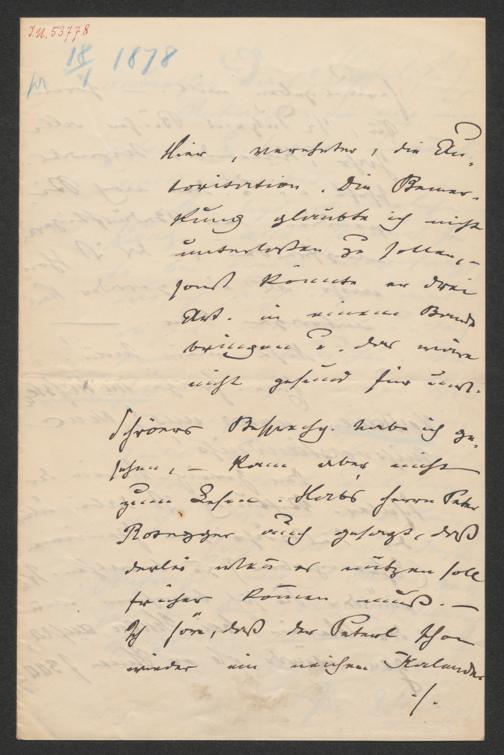 I.N. 53778
18/V 1878
Hier, verehrter, die Au-
torisation. Die Bemer-
kung glaubte ich nicht
unterlassen zu sollen, –
sonst könnte er drei
Art. in einem Bande
bringen u. das wäre
nicht gesund für uns.
Schröers Besprechg. habe ich ge-
sehen, – kam aber nicht
zum Lesen. Habs Herrn Peter
Rosegger auch gesagt, daß
derlei wenn es nützen soll
früher kommen muß. –
Ich höre, daß der Peterl schon
wieder ein neichen Kalender
./.